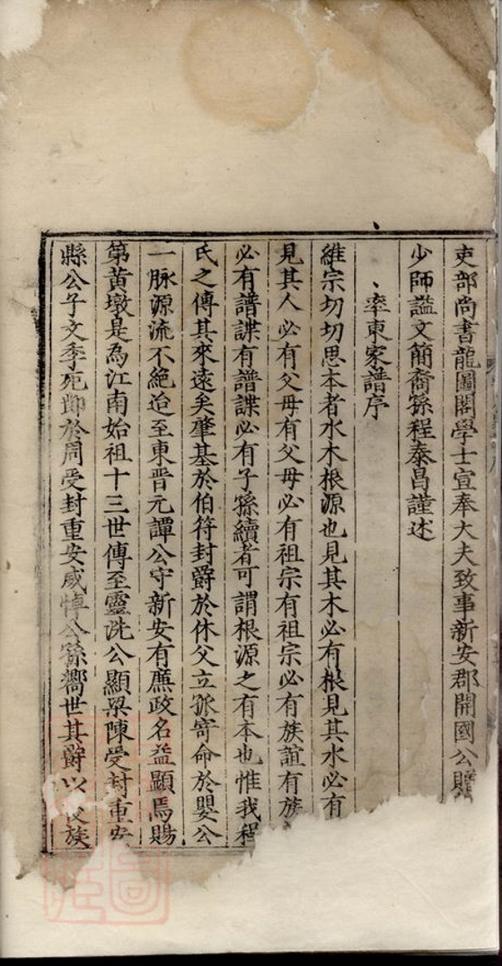 吏部尚書龍圖閣學士宣奉大夫致事新安郡開國公贈
少師謚文簡裔孫程泰昌謹述
率東家譜序
維宗切切思本者水木根源也見其木必有根見其水必有
見其人必有父母有父母必有祖宗有祖宗必有族誼有族
必有譜諜有譜諜必有子孫續者可謂根源之有本也惟我程
氏之傳其來遠矣肇基於伯符封爵於休父立孤寄命於嬰公
一脉源流不絕迨至東晋元譚公守新安有廉政名益顯焉賜
第黃墩是為江南始祖十三世傳至靈洗公顯梁陳受封重安
縣公子文季死節於周受封重安威悼公孫嚮世其爵以後族